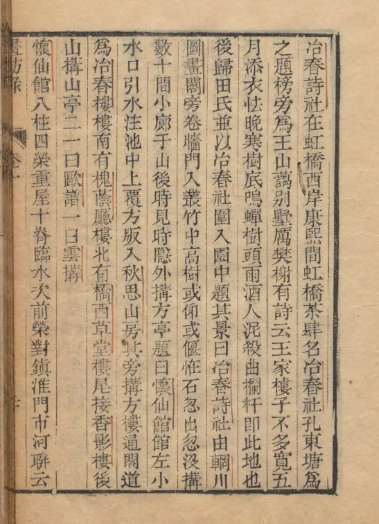 冶春詩社在虹橋西岸康熙間虹橋茶肆名冶春社孔東塘爲
之題榜旁爲王山藹別墅厲樊榭有詩云王家樓子不多寬五
月添衣怯晚寒樹底鳴蟬樹頭雨酒人泥殺曲欄杆卽此地也
後歸田氏並以冶春社圍入園中題其景曰冶春詩社由輞川
圖畫閣旁卷牆門入叢竹中高樹或仰或偃怪石忽出忽沒搆
數十間小廊于山後時見時隱外搆方亭題曰懷仙館館左小
水口引水注池中上覆方版入秋思山房其旁搆方樓通閣道
爲冶春樓樓南有槐蔭廳樓北有橋西草堂樓尾接香影樓後
山搆山亭二一曰歐譜一曰雲搆
懷仙館八柱四榮重屋十脊臨水次前榮對鎮淮門市河聯云
畫舫錄
卷十